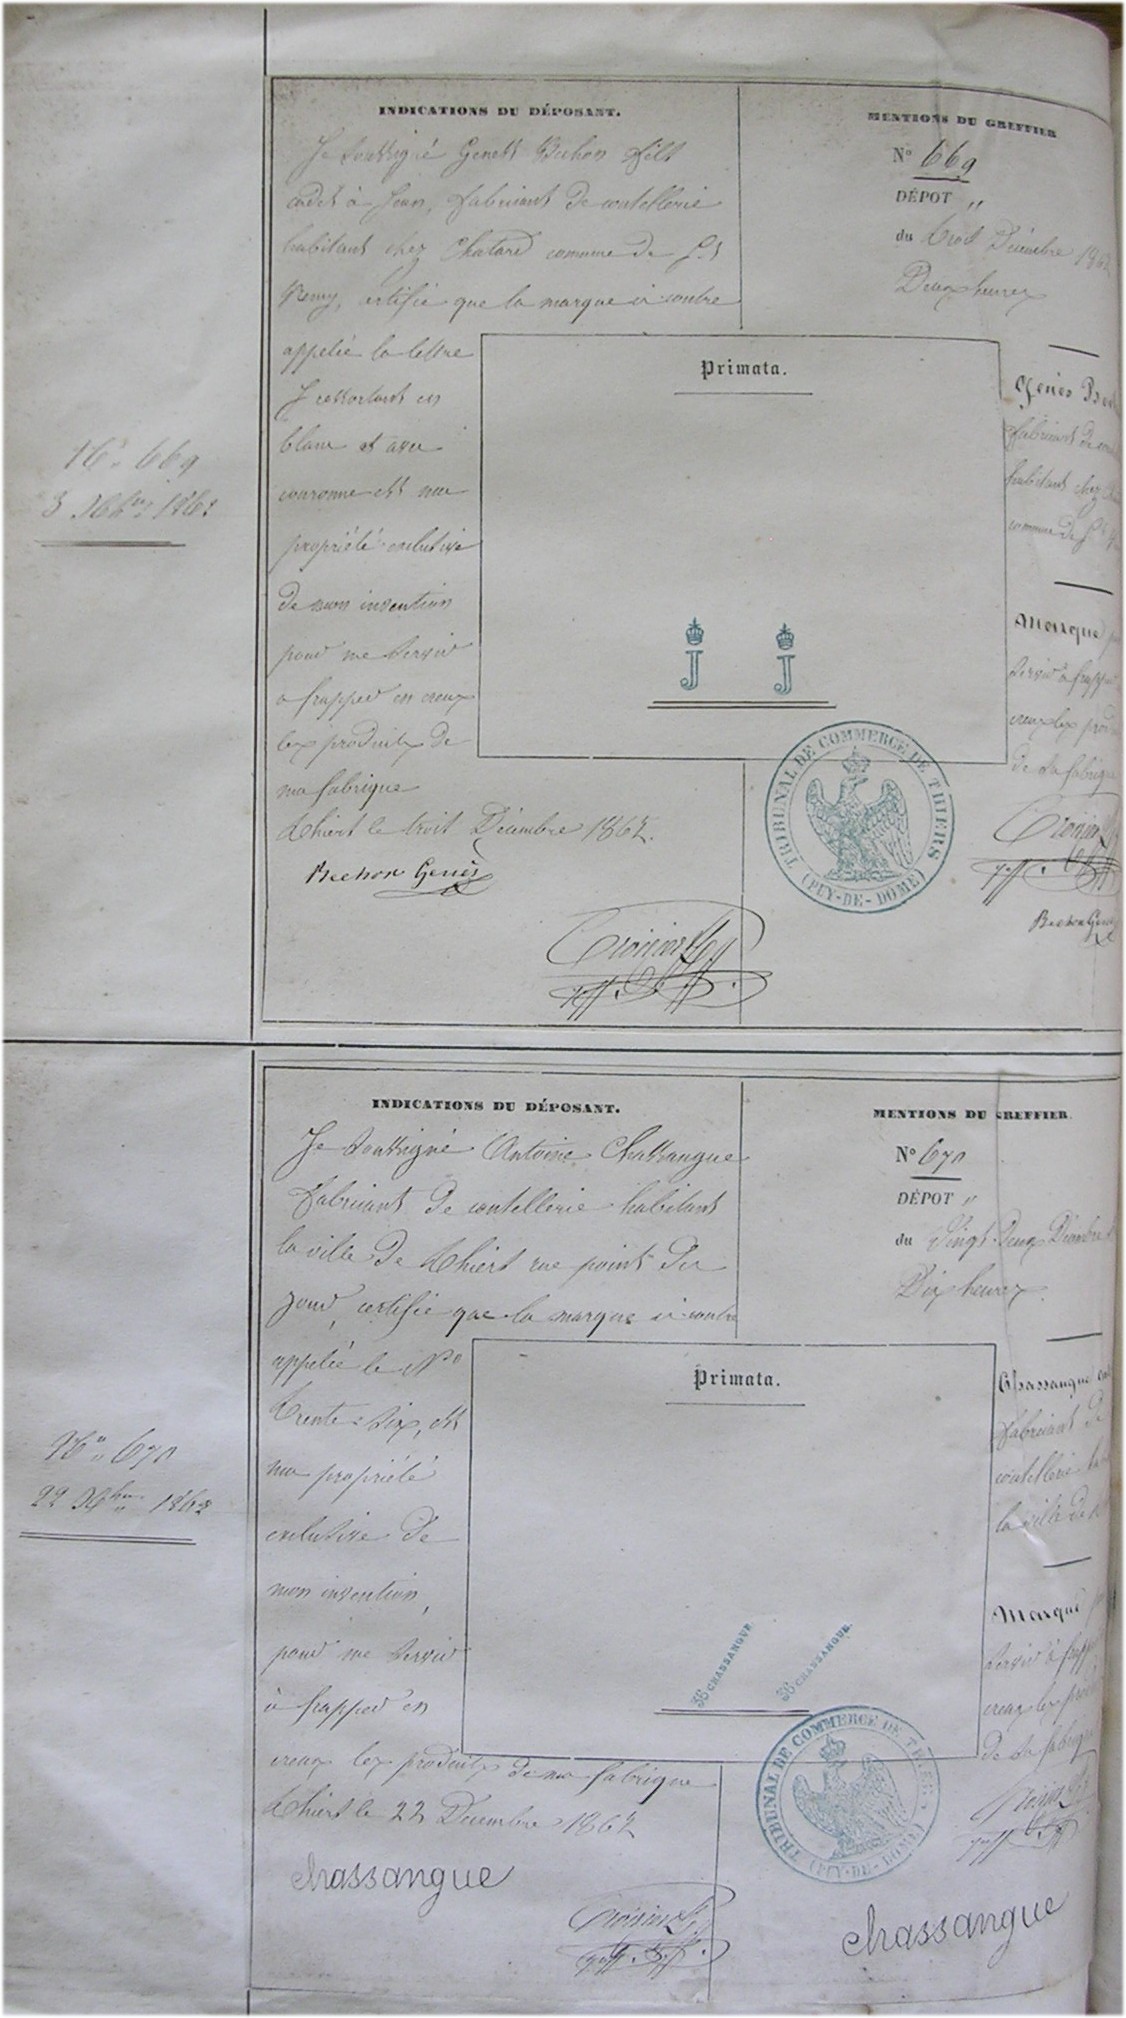 INDICATIONS DU DÉPOSANT.
Je soussigné Genest Bechon fils
cadet à Jean, fabricant de coutellerie
habitant chez Chatard commune de St
Remy, certifie que la marque ci contre
appelée la lettre
J ressortant en
blanc et avec
couronne est ma
propriété exclusive
de mon invention
pour me servir
a frapper en creux
les produits de
ma fabrique
Thiers le trois Décembre 1862.
Bechon Genès
MENTIONS DU GREFFIER
N° 669
DÉPOT "
du trois Décembre 186
Deux heures
Primata.
J J
TRIBUNAL DE COMMERCE DE THIERS
(PUY-DE-DOME)
Genès
fabricant de
habitant chez
commune de St
Marque
servir à frapper
creux les
de sa fabrique
Bechon
N° 669
3 Xbre 1862
INDICATIONS DU DÉPOSANT.
Je soussigné Antoine Chassangue
fabricant de coutellerie habitant
la ville de Thiers rue point du
jour, certifie que la marque ci contre
appelée le N°
trente-six, est
ma propriété
exclusive de
mon invention,
pour me servir
à frapper en
creux les produits de ma fabrique
Thiers le 22 Décembre 1862
chassangue
MENTIONS DU GREFFIER.
N° 670
DÉPOT "
du Vingt-Deux Décembre
Dix heures.
Primata.
36 CHASSANGUE. 36 CHASSANGUE.
TRIBUNAL DE COMMERCE DE THIERS
(PUY-DE-DOME)
Chassangue
fabricant de
coutellerie
la ville de
Marque
servir à
creux les
de sa fabrique
chassangue
N° 670
22 Xbre 1862